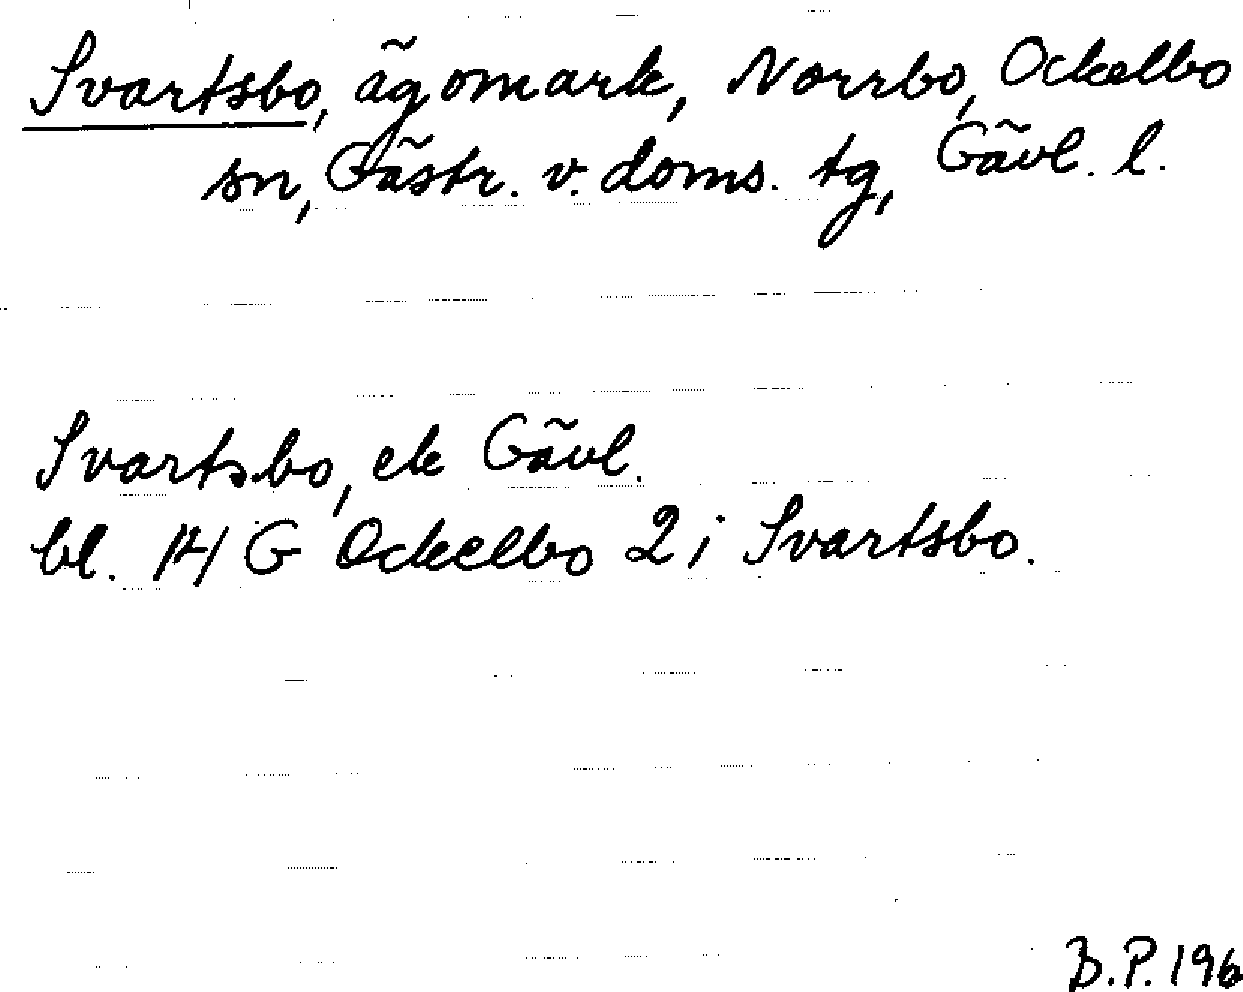 Svartsbo, ägomark, Norrbo, Ockelbo
sn, Gästr. v. doms. tg, Gävl. l.
Svartsbo, ek Gävl.
bl. 14 G Ockelbo 2 i Svartsbo.
B.P. 196